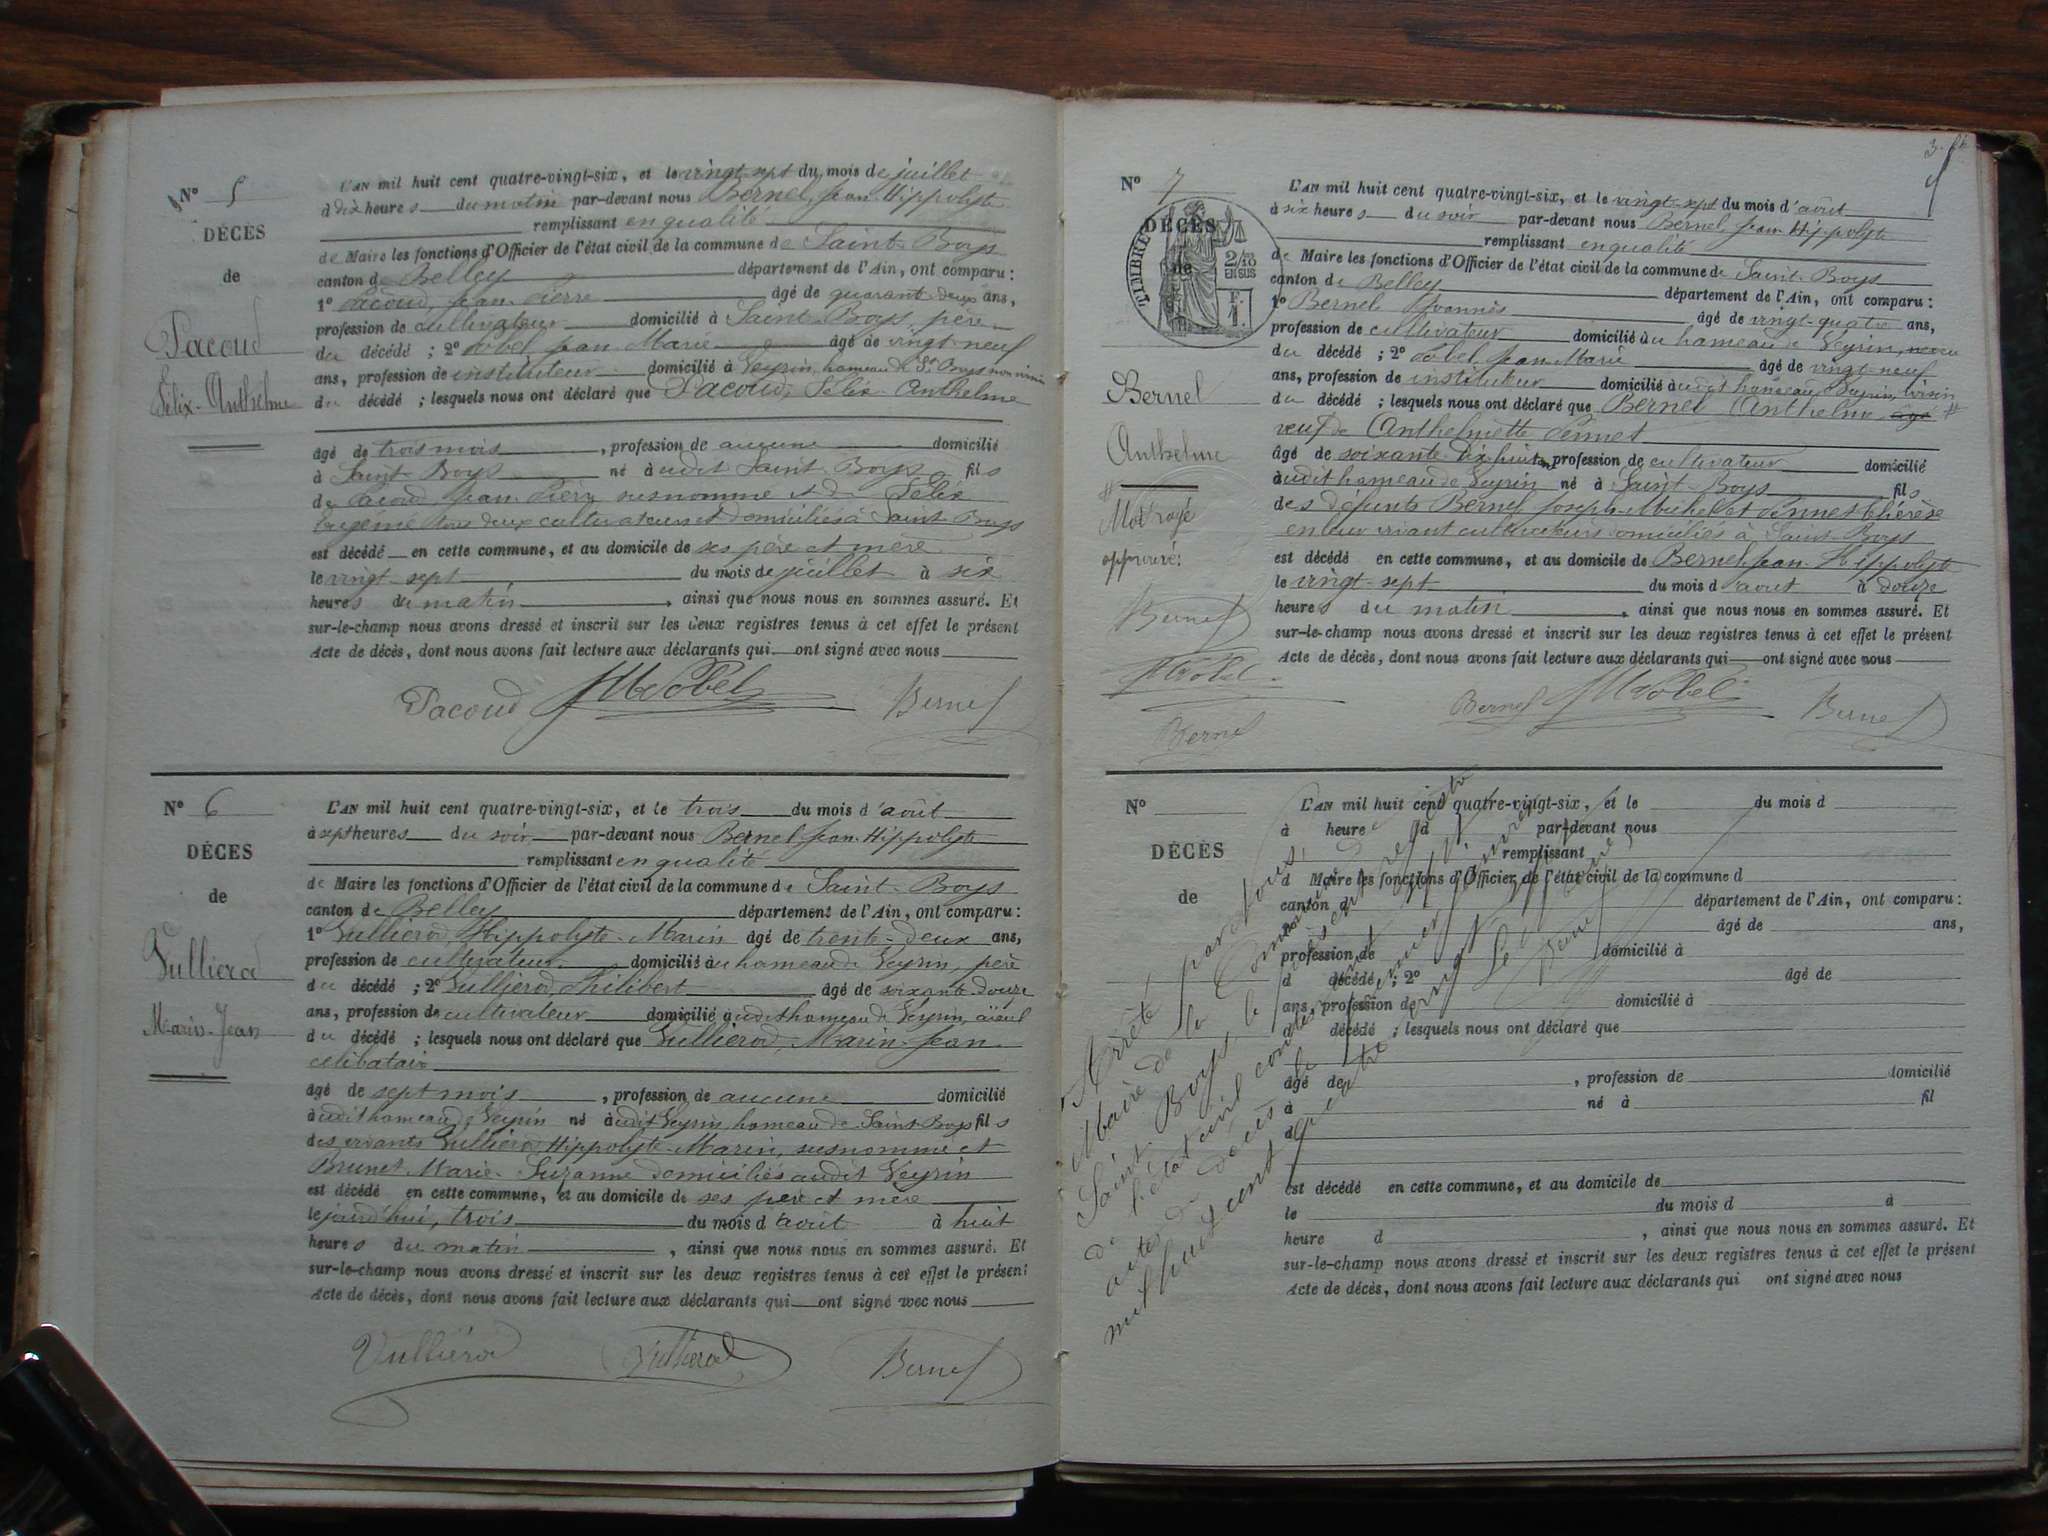 Nº 5
DÉCÈS
de
Pacoud
Félix-Anthelme
L'AN mil huit cent quatre-vingt-six, et le vingt-sept du mois de juillet
à dix heures du matin par-devant nous Bernel, Jean-Hippolyte
remplissant en qualité
de Maire les fonctions d'Officier de l'état civil de la commune de Saint-Boys
canton de Belley département de l'Ain, ont comparu :
1º Pacoud, Jean-Pierre âgé de quarante-deux ans,
profession de cultivateur domicilié à Saint-Boys, père
du décédé ; 2º Jean-Marie âgé de vingt-neuf
ans, profession de instituteur domicilié à Veyrin, hameau de St Boys non voisin
du décédé ; lesquels nous ont déclaré que Pacoud, Félix-Anthelme
âgé de trois mois, profession de aucune domicilié
à Saint-Boys né audit Saint-Boys fils
de Pacoud Jean-Pierre susnommé et de Félix
tous deux cultivateurs et domiciliés à Saint-Boys
est décédé en cette commune, et au domicile de ses père et mère
le vingt-sept du mois de juillet à six
heures du matin, ainsi que nous nous en sommes assuré. Et
sur-le-champ nous avons dressé et inscrit sur les deux registres tenus à cet effet le présent
Acte de décès, dont nous avons fait lecture aux déclarants qui ont signé avec nous
Pacoud Bernel
Nº 6
DÉCÈS
de
Vullierod
Marin-Jean
L'AN mil huit cent quatre-vingt-six, et le trois du mois d'août
à sept heures du soir par-devant nous Bernel, Jean-Hippolyte
remplissant en qualité
de Maire les fonctions d'Officier de l'état civil de la commune de Saint-Boys
canton de Belley département de l'Ain, ont comparu :
1º Vullierod, Hippolyte-Marin âgé de trente-deux ans,
profession de cultivateur domicilié au hameau de Veyrin, père
du décédé ; 2º Vullierod, Philibert âgé de soixante-douze
ans, profession de cultivateur domicilié audit hameau de Veyrin, aïeul
du décédé ; lesquels nous ont déclaré que Vullierod, Marin-Jean
célibataire
âgé de sept mois, profession de aucune domicilié
audit hameau de Veyrin né audit Veyrin, hameau de Saint-Boys fils
des vivants Vullierod, Hippolyte-Marin, susnommé et
Brunet Marie-Suzanne domiciliés audit Veyrin
est décédé en cette commune, et au domicile de ses père et mère
le jourd'hui, trois du mois d'août à huit
heures du matin, ainsi que nous nous en sommes assuré. Et
sur-le-champ nous avons dressé et inscrit sur les deux registres tenus à cet effet le présent
Acte de décès, dont nous avons fait lecture aux déclarants qui ont signé avec nous
Vulliérod Vullierod Bernel
Nº 7
DÉCÈS
de
TIMBRE
2/10
EN SUS
Bernel
Anthelme
Mot rayé
approuvé :
Bernel
Bernel
L'AN mil huit cent quatre-vingt-six, et le vingt-sept du mois d'août
à six heures du soir par-devant nous Bernel, Jean-Hippolyte
remplissant en qualité
de Maire les fonctions d'Officier de l'état civil de la commune de Saint-Boys
canton de Belley département de l'Ain, ont comparu :
1º Bernel âgé de vingt-quatre ans,
profession de cultivateur domicilié au hameau de Veyrin, neveu
du décédé ; 2º Jean-Marie âgé de vingt-neuf
ans, profession de instituteur domicilié audit hameau Veyrin, voisin
du décédé ; lesquels nous ont déclaré que Bernel Anthelme âgé #
veuf de Anthelmette Pennet
âgé de soixante-dix-huit ans profession de cultivateur domicilié
audit hameau de Veyrin né à Saint-Boys fils
des défunts Bernel Joseph-Michel et Pennet thérèse
en leur vivant cultivateurs domiciliés à Saint-Boys
est décédé en cette commune, et au domicile de Bernel, Jean-Hippolyte
le vingt-sept du mois d'août à douze
heures du matin, ainsi que nous nous en sommes assuré. Et
sur-le-champ nous avons dressé et inscrit sur les deux registres tenus à cet effet le présent
Acte de décès, dont nous avons fait lecture aux déclarants qui ont signé avec nous
Bernel Bernel
Nº
DÉCÈS
de
L'AN mil huit cent quatre-vingt-six, et le du mois d
à heure d par-devant nous
remplissant
d Maire les fonctions d'Officier de l'état civil de la commune d
canton d département de l'Ain, ont comparu :
âgé de ans,
profession de domicilié à
d décédé ; 2º âgé de
ans, profession de domicilié à
d décédé ; lesquels nous ont déclaré que
âgé de, profession de domicilié
à né à fil
d
est décédé en cette commune, et au domicile de
le du mois d à
heure d, ainsi que nous nous en sommes assuré. Et
sur-le-champ nous avons dressé et inscrit sur les deux registres tenus à cet effet le présent
Acte de décès, dont nous avons fait lecture aux déclarants qui ont signé avec nous
Arrêté par nous,
Maire de la Commune
de Saint-Boys, le présent registre
de l'état civil
actes de décès
mil huit cent quatre